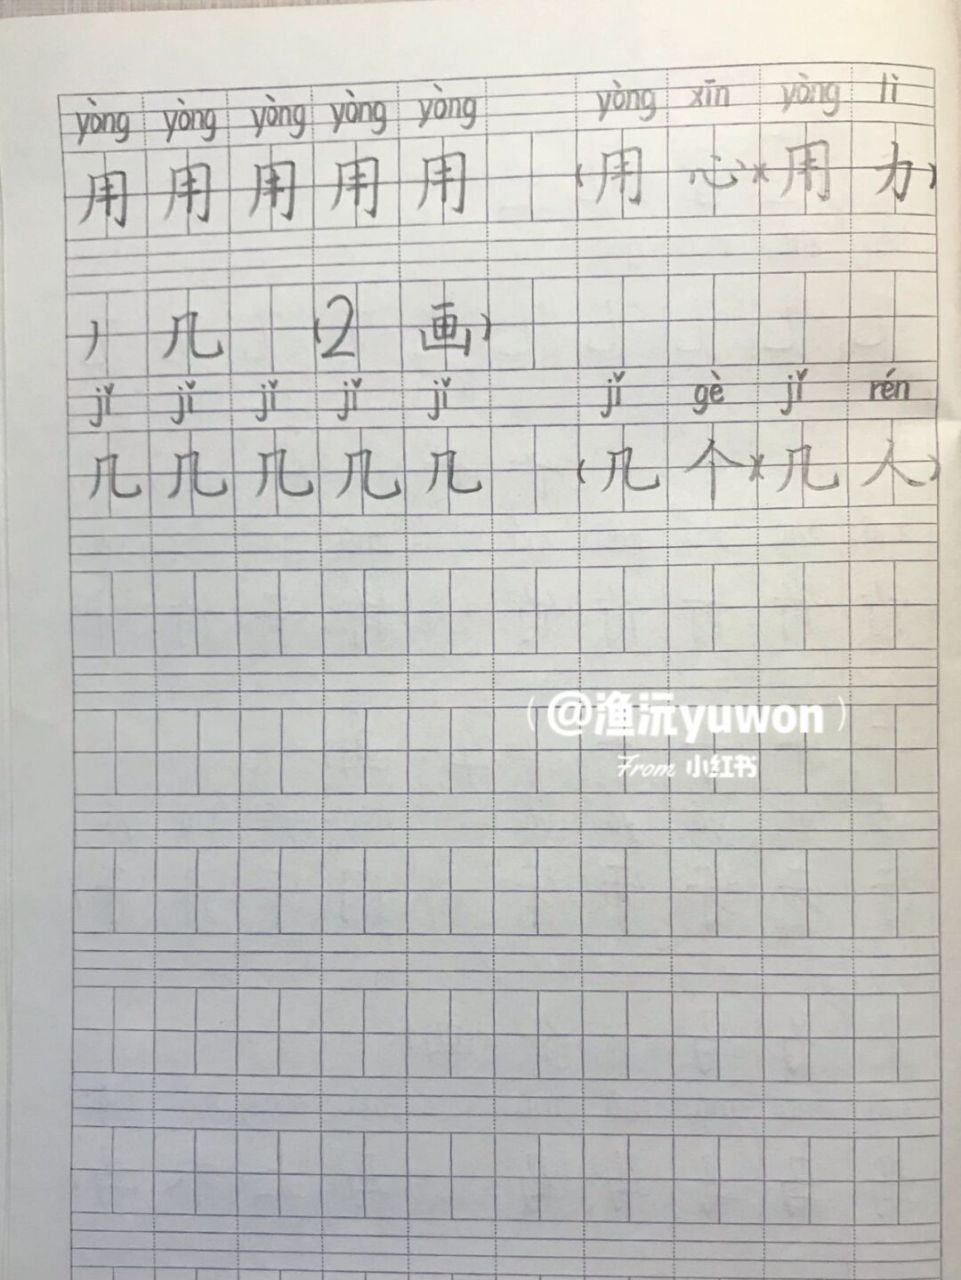 yòng yòng yòng yòng yòng yòng xīn yòng lì
用 用 用 用 用 (用 心)(用 力)
丿 几 (2 画)
jǐ jǐ jǐ jǐ jǐ jǐ gè jǐ rén
几 几 几 几 几 (几 个)(几 人)
(@渔沅yuwon)
From 小红书